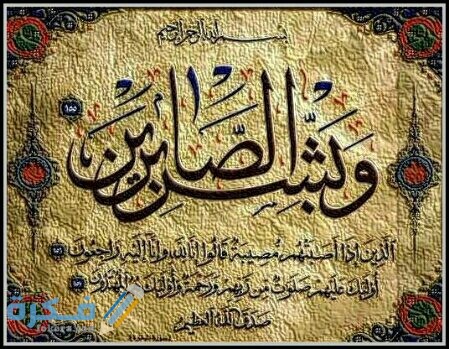 بسم الله الرحمن الرحيم
وَبَشِّرِ الصَّابِرِينَ ١٥٥
الَّذِينَ إِذَا أَصَابَتْهُمْ مُصِيبَةٌ قَالُوا إِنَّا لِلَّهِ وَإِنَّا إِلَيْهِ رَاجِعُونَ ١٥٦
أُولَٰئِكَ عَلَيْهِمْ صَلَوَاتٌ مِنْ رَبِّهِمْ وَرَحْمَةٌ وَأُولَٰئِكَ هُمُ الْمُهْتَدُونَ ١٥٧
صدق الله العظيم
فكرة